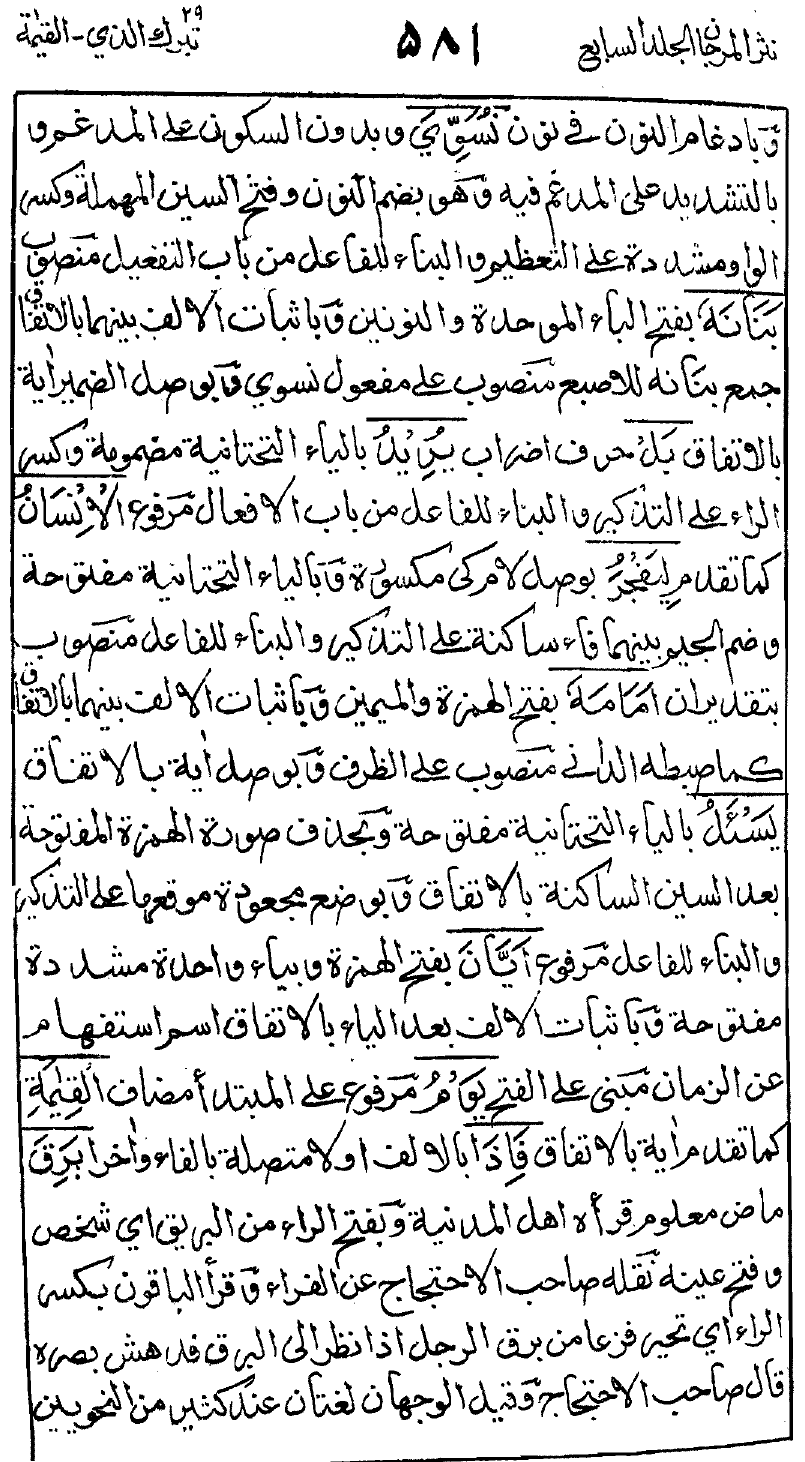 نثر المرجان الجلد السابع ٥٨١ تبرك الذي ٢٩ - القيمة
وبادغام النون في نون نُسَوِّيَ وبدون السكون على المدغم و
بالتشديد على المدغم فيه وهو بضم النون وفتح السين المهملة وكسر
الواو مشددة على التعظيم والبناء للفاعل من باب التفعيل منصوب
بَنَانَهُ بفتح الباء الموحدة والنونين وباثبات الالف بينهما بالاتفاق
جمع بنانه للاصبع منصوب على مفعول نسوي وبوصل الضمير اٰية
بالاتفاق بَلْ حرف اضراب يُرِيْدُ بالياء التحتانية مضمومة وكسر
الراء على التذكير والبناء للفاعل من باب الافعال مرفوع الْاِنْسَانُ
كما تقدم لِيَفْجُرَ بوصل لام كى مكسورة وبالياء التحتانية مفتوحة
وضم الجيم بينهما فاء ساكنة على التذكير والبناء للفاعل منصوب
بتقدير ان اَمَامَهُ بفتح الهمزة والميمين وباثبات الالف بينهما بالاتفاق
كما ضبطه الداني منصوب على الظرف وبوصل اٰية بالاتفاق
يَسْئَلُ بالياء التحتانية مفتوحة وبحذف صورة الهمزة المفتوحة
بعد السين الساكنة بالاتفاق وبوضع مجعودة موقعها على التذكير
والبناء للفاعل مرفوع اَيَّانَ بفتح الهمزة وبياء واحدة مشددة
مفتوحة وباثبات الالف بعد الياء بالاتفاق اسم استفهام
عن الزمان مبنى على الفتح يَوْمُ مرفوع على المبتدأ مضاف الْقِيٰمَةِ
كما تقدم اٰية بالاتفاق فَاِذَا بالالف اولا متصلة بالفاء واٰخرا بَرِقَ
ماض معلوم قرأه اهل المدنية وبفتح الراء من البريق اي شخص
وفتح عينه نقله صاحب الاحتجاج عن الفراء وقرأ الباقون بكسر
الراء اي تحير فزعا من برق الرجل اذا نظر الى البرق فدهش بصره
قال صاحب الاحتجاج وقيل الوجهان لغتان عند كثير من النحويين